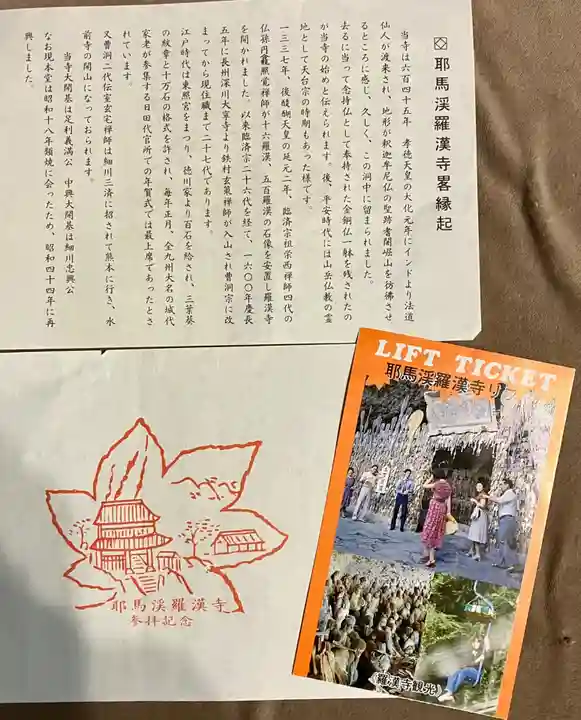 ◇ 耶馬渓羅漢寺畧縁起
当寺は六百四十五年 孝徳天皇の大化元年にインドより法道
仙人が渡来され、地形が釈迦牟尼仏の聖跡耆闍崛山を彷彿させ
るところに感じ、久しく、この洞中に留まられました。
去るに当って念持仏として奉持された金銅仏一躰を残されたの
が当寺の始めと伝えられます。後、平安時代には山岳仏教の霊
地として天台宗の時期もあった様です。
一三三七年、後醍醐天皇の延元二年、臨済宗祖栄西禅師四代の
仏孫円龕照覚禅師が十六羅漢、五百羅漢の石像を安置し羅漢寺
を開かれました。以来臨済宗二十六代を経て、一六〇〇年慶長
五年に長州深川大寧寺より鉄村玄𮎰禅師が入山され曹洞宗に改
まってから現住職まで二十七代であります。
江戸時代は東照宮をまつり、徳川家より百石を給され、三葉葵
の紋章と十万石の格式を許され、毎年正月、全九州大名の城代
家老が参集する日田代官所での年賀式では最上席であったとさ
れています。
又曹洞二代伝室玄宅禅師は細川三済に招されて熊本に行き、氷
前寺の開山になっておられます。
当寺大開基は足利義満公 中興大開基は細川忠興公
なお現本堂は昭和十八年類焼に会ったため、昭和四十四年に再
興しました。
耶馬渓羅漢寺
参拝記念
LIFT TICKET
耶馬渓羅漢寺リフト
(羅漢寺観光)